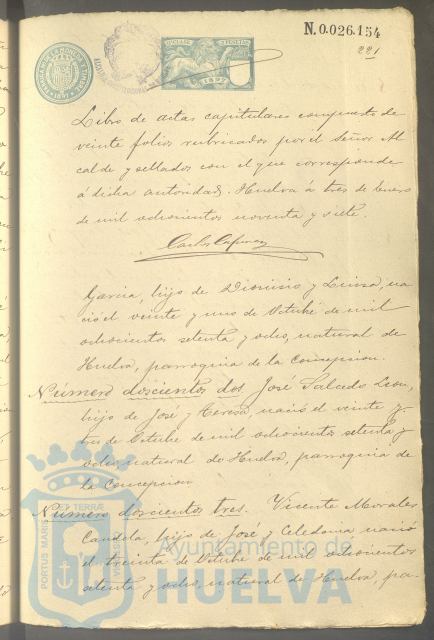 N.0.026.154
221
Libro de actas capitulares compuesto de
veinte folios rubricados por el Señor Al
calde y sellados con el que corresponde
á dicha autoridad. Huelva á tres de Enero
de mil ochocientos noventa y siete.
Carlos
Garcia, hijo de Dionisio y Luisa, na
ció el veinte y uno de Octubre de mil
ochocientos setenta y ocho, natural de
Huelva, parroquia de la Concepcion.
Número doscientos dos José Salcedo Leon,
hijo de José y Teresa, nació el veinte y
tres de Octubre de mil ochocientos setenta y
ocho natural de Huelva, parroquia de
la Concepcion
Número doscientos tres. Vicente Morales
Candela, hijo de José y Celedonia nació
el treinta de Octubre de mil ochocientos
setenta y ocho, natural de Huelva, pa-
PORTUS MARIS ET TERRÆ
Ayuntamiento de
HUELVA